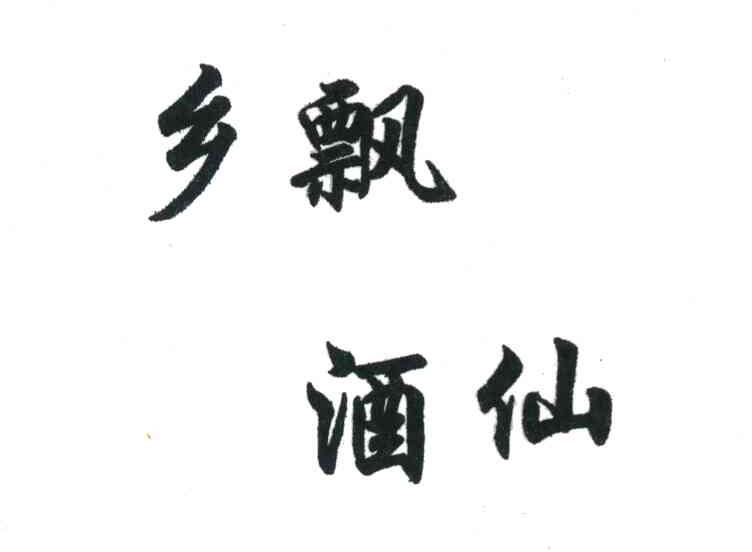 乡飘
酒仙